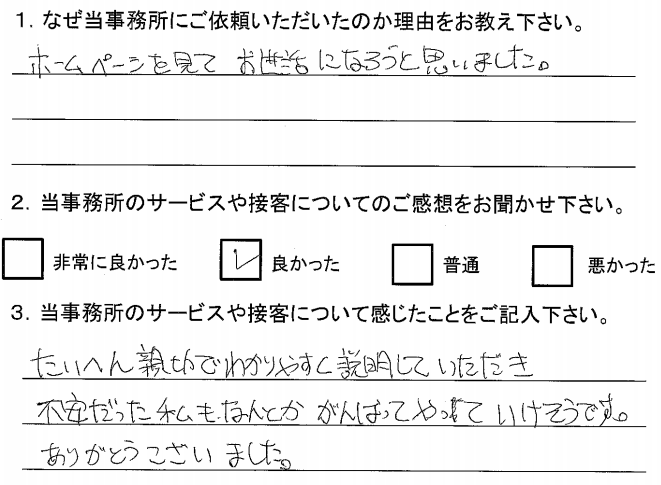 1. なぜ当事務所にご依頼いただいたのか理由をお教え下さい。
ホームページを見て お世話になろうと思いました。
2. 当事務所のサービスや接客についてのご感想をお聞かせ下さい。
非常に良かった 良かった 普通 悪かった
3. 当事務所のサービスや接客について感じたことをご記入下さい。
たいへん親切でわかりやすく説明していただき
不安だった私も、なんとか がんばってやって いけそうです。
ありがとうございました。